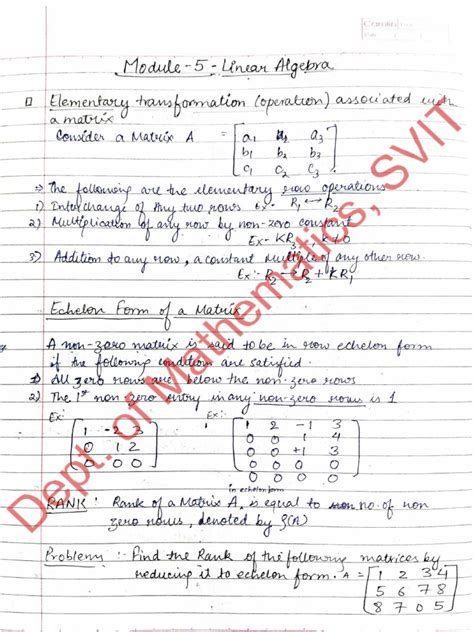 Module - 5 - Linear Algebra
Elementary transformation (operation) associated with
a matrix
Consider a Matrix A = [a₁ a₂ a₃
b₁ b₂ b₃
c₁ c₂ c₃]
⇒ The following are the elementary row operations
1) Interchange of any two rows Ex:- R₁ ↔ R₂
2) Multiplication of any row by non-zero constant
Ex:- KR₃, k≠0
3) Addition to any row, a constant multiple of any other row.
Ex:- R₂ → R₂ + KR₁
Echelon Form of a Matrix
A non-zero matrix is said to be in row echelon form
if the following condition are satisfied.
1) All zero rows are below the non-zero rows
2) The 1st non zero entry in any non-zero rows is 1
Ex: Ex:
[1 -2 3
0 1 2
0 0 0]
[1 2 -1 3
0 0 1 4
0 0 +1 3
0 0 0 0
0 0 0 0]
in echelon form
RANK : Rank of a Matrix A, is equal to no. of non
zero rows, denoted by ρ(A)
Problem :- Find the Rank of the following matrices by
reducing it to echelon form. A = [1 2 3 4
5 6 7 8
8 7 0 5]
Dept. of Mathematics, SVIT